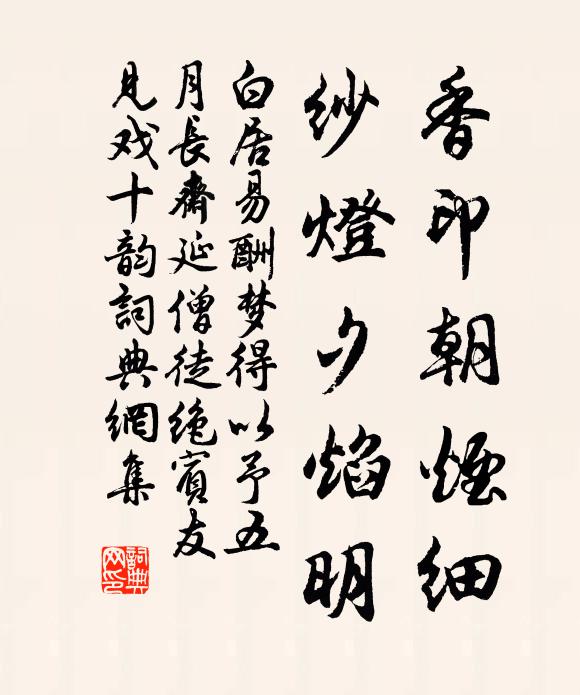 香印朝煙細
紗燈夕焰明
白居易酬梦得以予五
月長齋延僧徒絶賓友
見戏十韵詞典網集
詞典网印